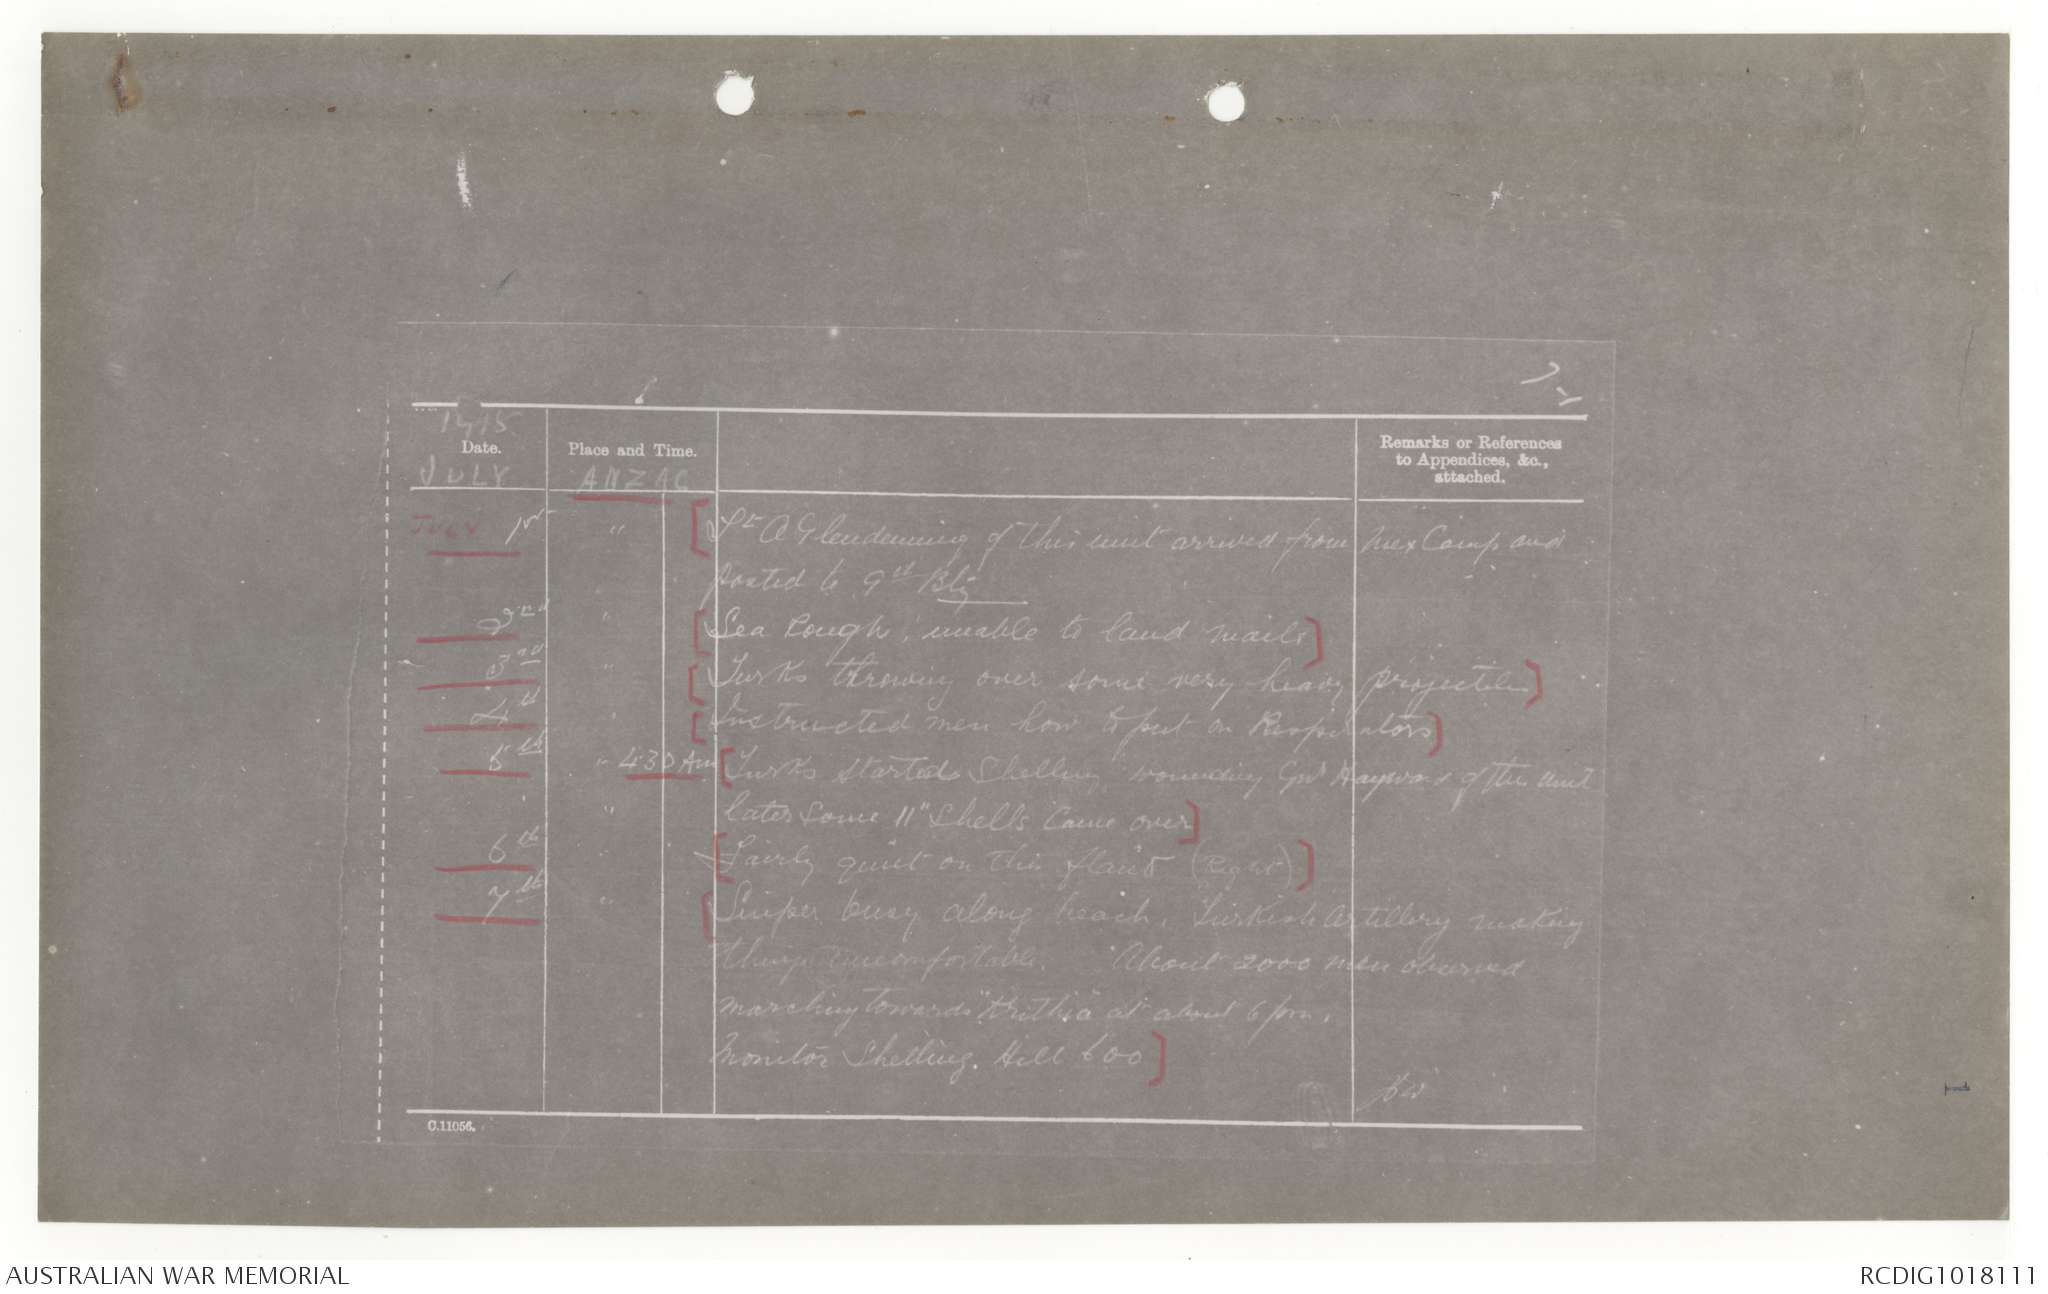 1915
Date. Place and Time. Remarks or References
to Appendices, &c.,
attached.
JULY ANZAC
July 1st " Lt A Glendenning of this unit arrived from Mex Camp and
posted to 9th Bty
2nd " Sea Rough, unable to land mails
3rd " Turks throwing over some very heavy projectiles
4th " Instructed men how to put on Respirators
5th " 430 Am Turks started shelling, wounding Gnr Hayward of this unit
" later some 11" shells came over
6th " Fairly quiet on this flank (Right)
7th " Sniper busy along beach, Turkish artillery making
things uncomfortable. About 2000 men observed
marching towards "Krithia" at about 6 pm.
Monitor shelling. Hill 600
C.11056.
AUSTRALIAN WAR MEMORIAL RCDIG1018111